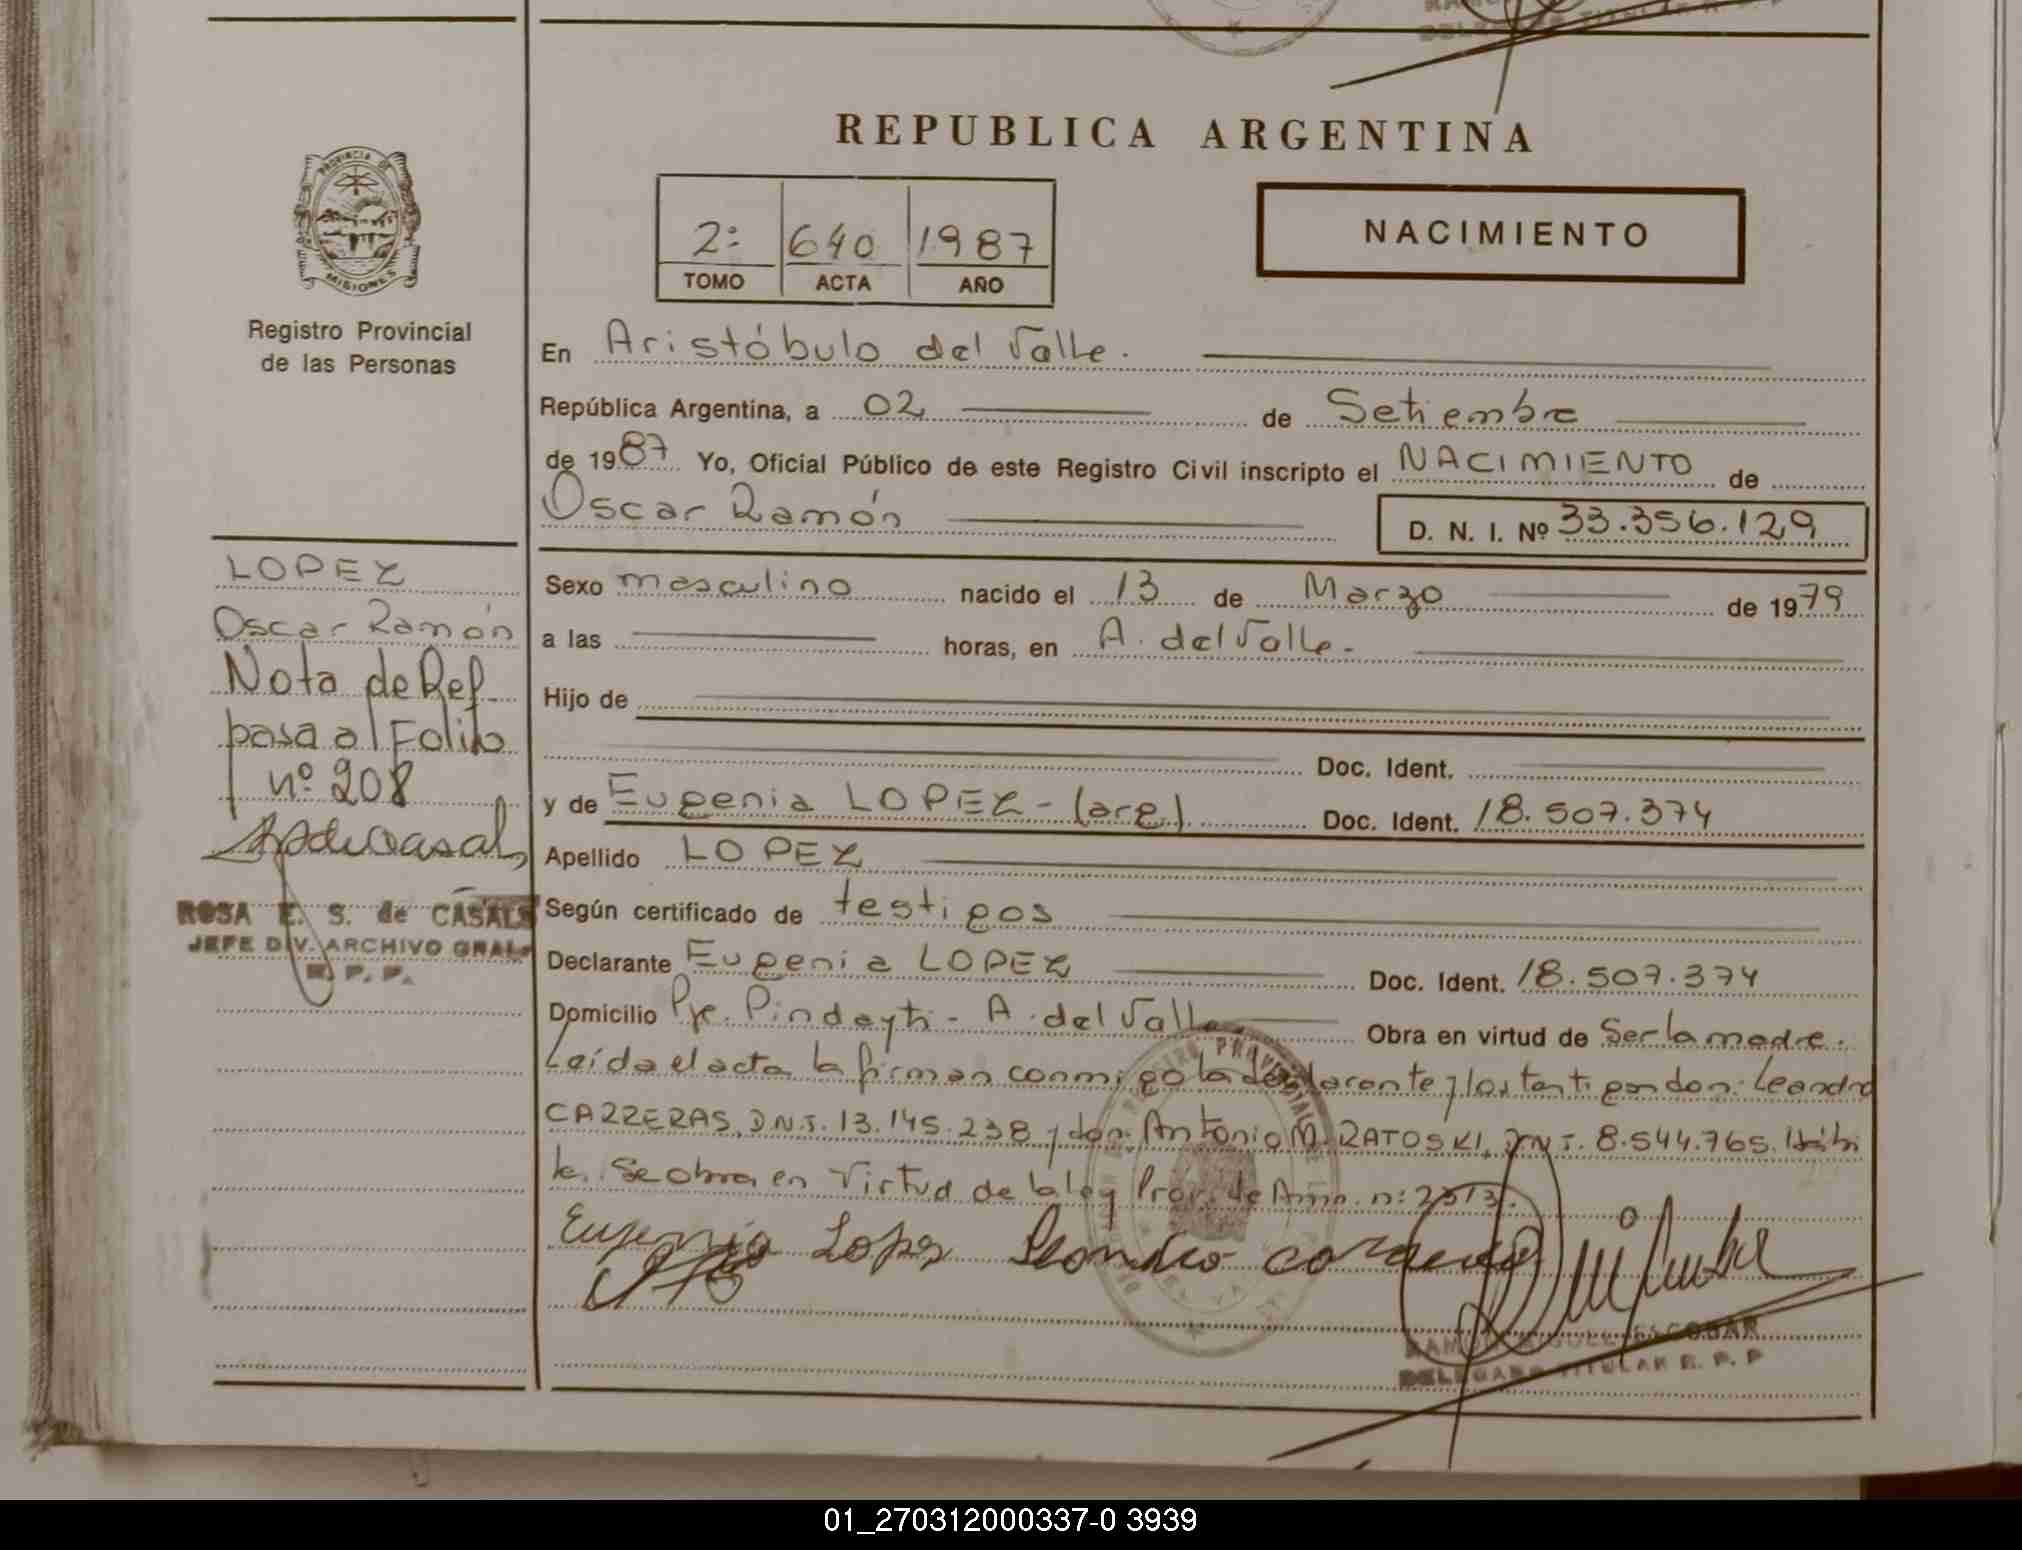 REPUBLICA ARGENTINA
PROVINCIA DE
MISIONES
Registro Provincial
de las Personas
2: 640 1987
TOMO ACTA AÑO
NACIMIENTO
En Aristóbulo del Valle.
República Argentina, a 02 de Setiembre
de 1987 Yo, Oficial Público de este Registro Civil inscripto el NACIMIENTO de
Oscar Ramón
D. N. I. Nº 33.356.129
LOPEZ
Oscar Ramón
Nota de Ref.
pasa al Folio
nº 208
ROSA E. S. de CASALS
JEFE DIV. ARCHIVO GRAL.
R. P. P.
Sexo masculino nacido el 13 de Marzo de 1979
a las horas, en A. del Valle.-
Hijo de
Doc. Ident.
y de Eugenia LOPEZ - (arg) Doc. Ident. 18.507.374
Apellido LOPEZ
Según certificado de testigos
Declarante Eugenia LOPEZ Doc. Ident. 18.507.374
Domicilio Pje. Pindayti - A. del Valle Obra en virtud de Ser la madre.
Leída el acta la firman conmigo la declarante y los testigos don: Leandro
CARRERAS, D.N.I. 13.145.238 y don: Antonio M. RATOSKI, D.N.I. 8.544.765. Hábi
le. Se obra en Virtud de la ley Prov. de Amn. n: 2313.
Eugenia Lopes Leandro
RAMON MIGUEL ESCOBAR
DELEGADO TITULAR R. P. P
01_270312000337-0 3939